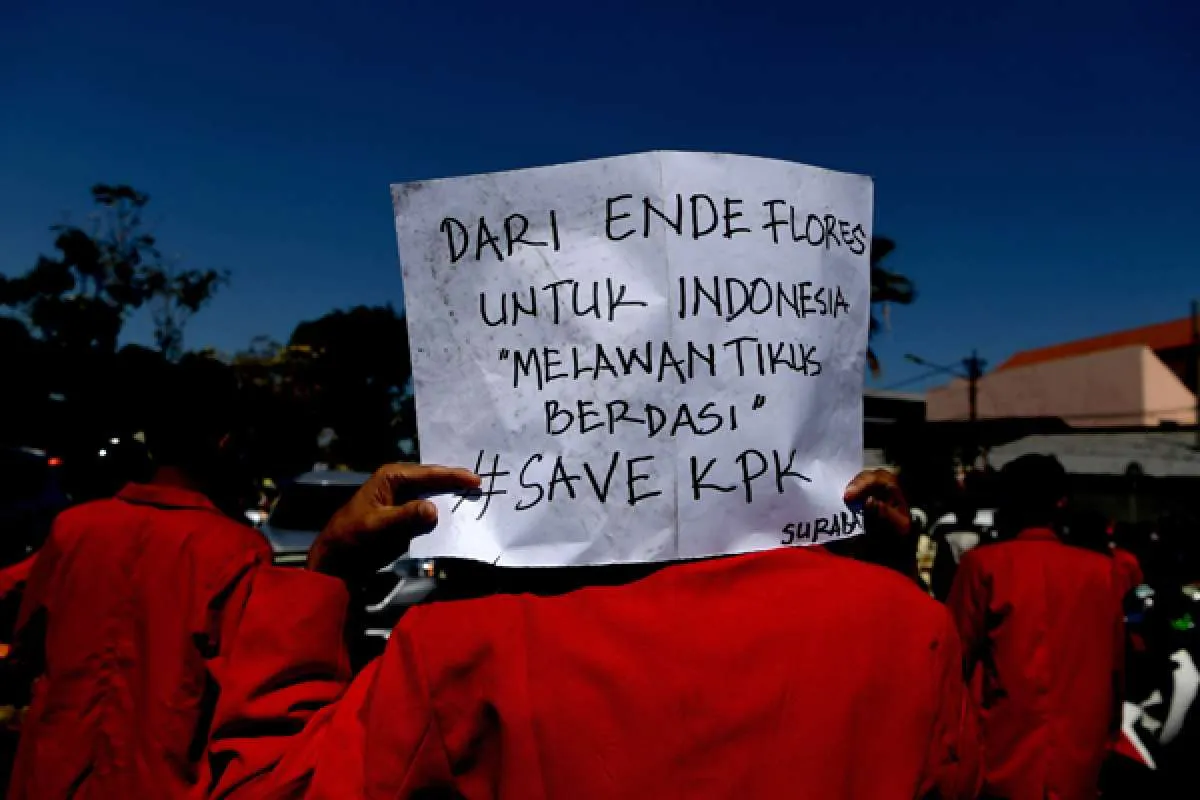 DARI ENDE FLORES
UNTUK INDONESIA
"MELAWAN TIKUS
BERDASI"
#SAVE KPK